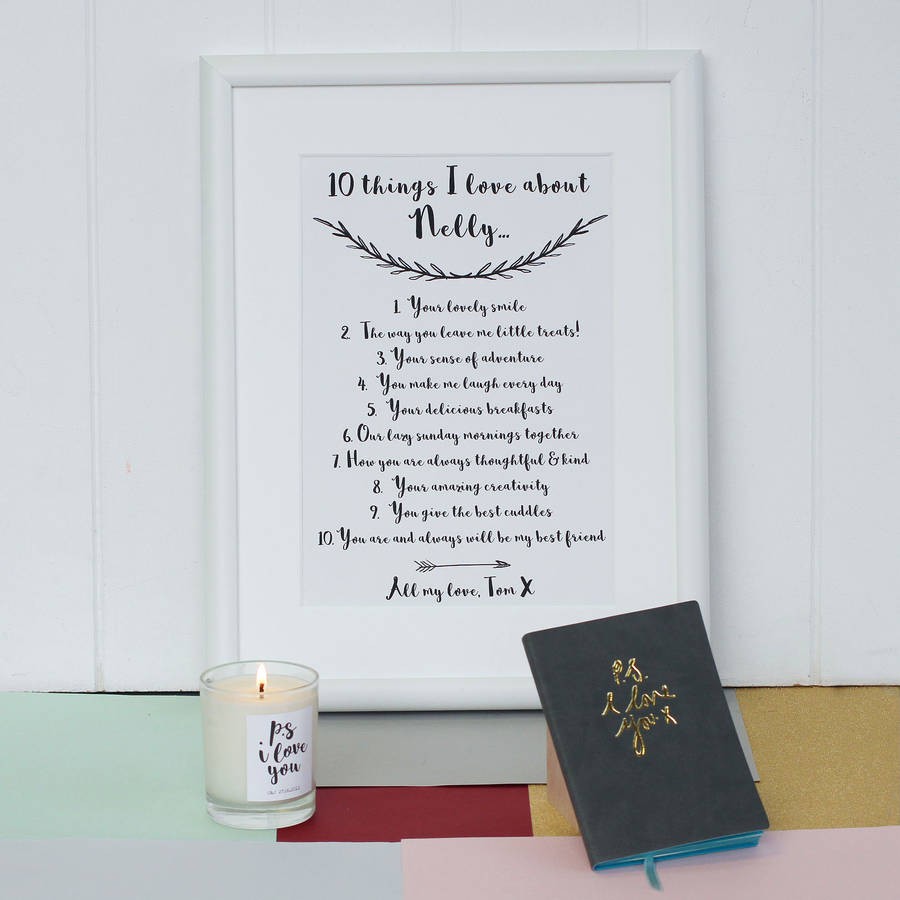 10 things I love about
Nelly...
1. Your lovely smile
2. The way you leave me little treats!
3. Your sense of adventure
4. You make me laugh every day
5. Your delicious breakfasts
6. Our lazy sunday mornings together
7. How you are always thoughtful & kind
8. Your amazing creativity
9. You give the best cuddles
10. You are and always will be my best friend
All my love, Tom X
p.s
i love
you
P.S.
I love
you x